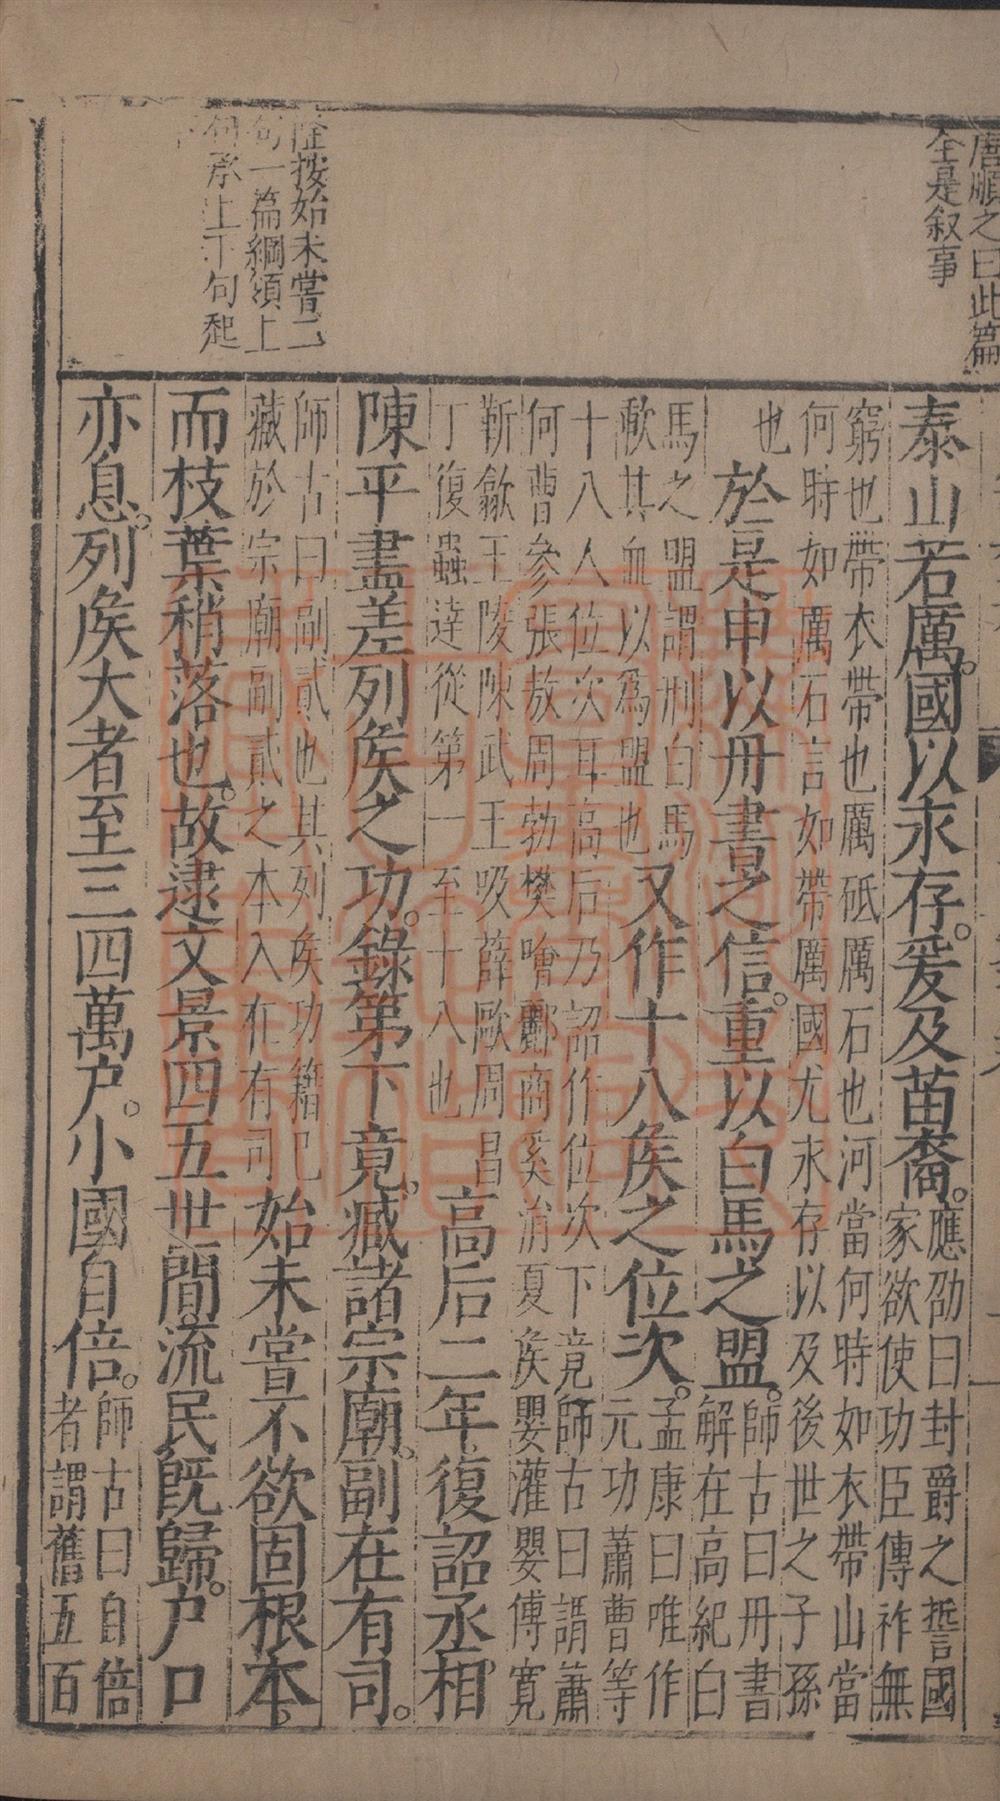 唐順之曰此篇
全是叙事
隆按始未嘗二
句一篇綱領上
句承上下句起
下
泰山若厲。國以永存。爰及苗裔。應劭曰封爵之誓國
家欲使功臣傳祚無
窮也帶衣帶也厲砥厲石也河當何時如衣帶山當
何時如厲石言如帶厲國尤永存以及後世之子孫
也
於是申以冊書之信。重以白馬之盟。師古曰冊書
解在高紀白
馬之盟謂刑白馬
歃其血以為盟也
又作十八侯之位次。孟康曰唯作
元功蕭曹等
十八人位次耳高后乃詔作位次下竟師古曰謂蕭
何曹參張敖周勃樊噲酈商奚涓夏侯嬰灌嬰傅寬
靳歙王陵陳武王吸薛歐周昌
丁復蟲達從第一至十八也
高后二年。復詔丞相
陳平盡差列侯之功。錄第下竟。臧諸宗廟。副在有司。
師古曰副貳也其列侯功籍已
藏於宗廟副貳之本入在有司
始未嘗不欲固根本。
而枝葉稍落也。故逮文景四五世間流民既歸。户口
亦息。列侯大者至三四萬户。小國自倍。師古曰自倍
者謂舊五百